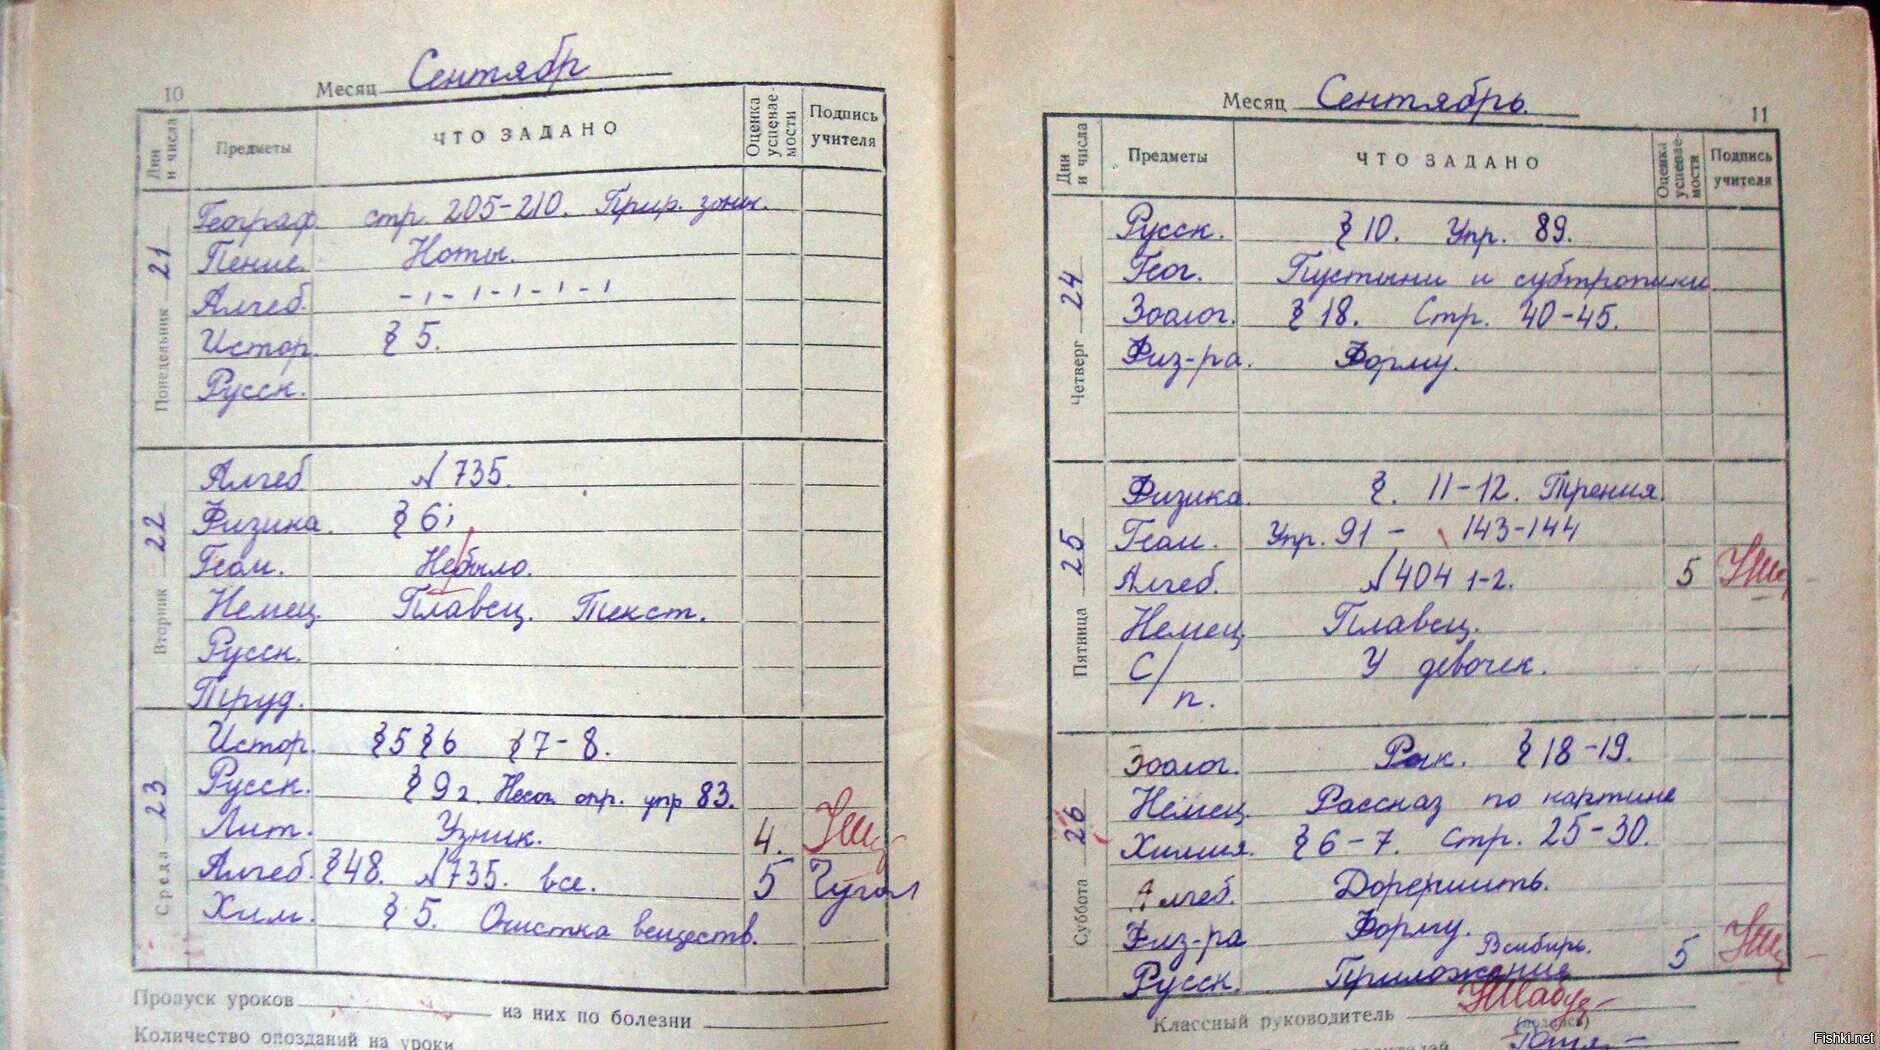 10 Месяц Сентябр
Дни и числа Предметы ЧТО ЗАДАНО Оценка успевае-мости Подпись учителя
Понедельник 21
Географ. стр. 205-210. Прир. зоны.
Пение. Ноты.
Алгеб. -ı-ı-ı-ı-ı
Истор. § 5.
Русск.
Вторник 22
Алгеб. №735.
Физика. § 6;
Геом. Небыло.
Немец. Плавец. Текст.
Русск.
Труд.
Среда 23
Истор. §5 §6 §7-8.
Русск. § 9 г. Несог. опр. упр 83.
Лит. Узник. 4.
Алгеб. §48. №735. все. 5
Хим. § 5. Очистка веществ.
Пропуск уроков из них по болезни
Количество опозданий на уроки
Месяц Сентябрь. 11
Дни и числа Предметы ЧТО ЗАДАНО Оценка успевае-мости Подпись учителя
Четверг 24
Русск. § 10. Упр. 89.
Геог. Пустыни и субтропики
Зоолог. § 18. Стр. 40-45.
Физ-ра. Форму.
Пятница 25
Физика. §. 11-12. Трения.
Геом. Упр. 91 - 143-144
Алгеб. №404 1-2. 5
Немец. Плавец.
С/п. У девочек.
Суббота 26
Зоолог. Рак. § 18-19.
Немец. Рассказ по картине
Химия. § 6-7. Стр. 25-30.
Алгеб. Дорешить.
Физ-ра Форму.
Всибирь.
Русск. Приложение 5
Классный руководитель
(подпись)
Fishki.net